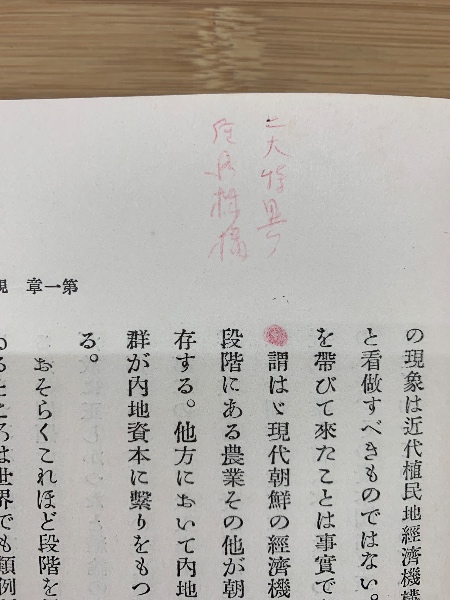 二大特異
経済機構
第一章
の現象は近代植民地經濟機構
と看做すべきものではない。
を帶びて來たことは事實で
謂はゞ現代朝鮮の經濟機
段階にある農業その他が朝
存する。他方において内地
群が内地資本に繫りをもつ
る。
おそらくこれほど段階を
るところは世界でも類例